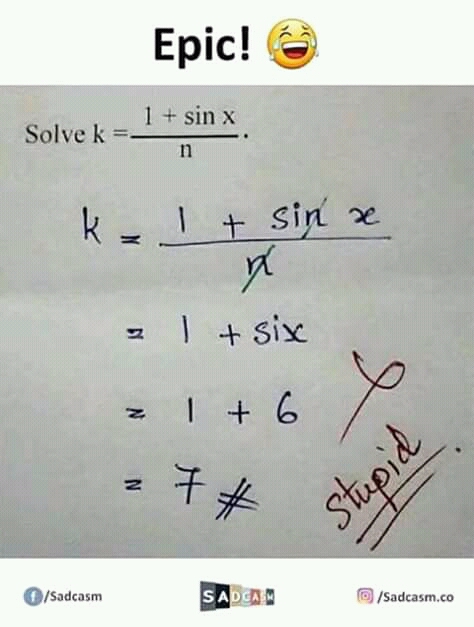 Epic! 😂
Solve k = 1 + sin x / n .
k = 1 + sin x / n
= 1 + six
= 1 + 6
= 7 #
Stupid.
/Sadcasm
SADCASM
/Sadcasm.co